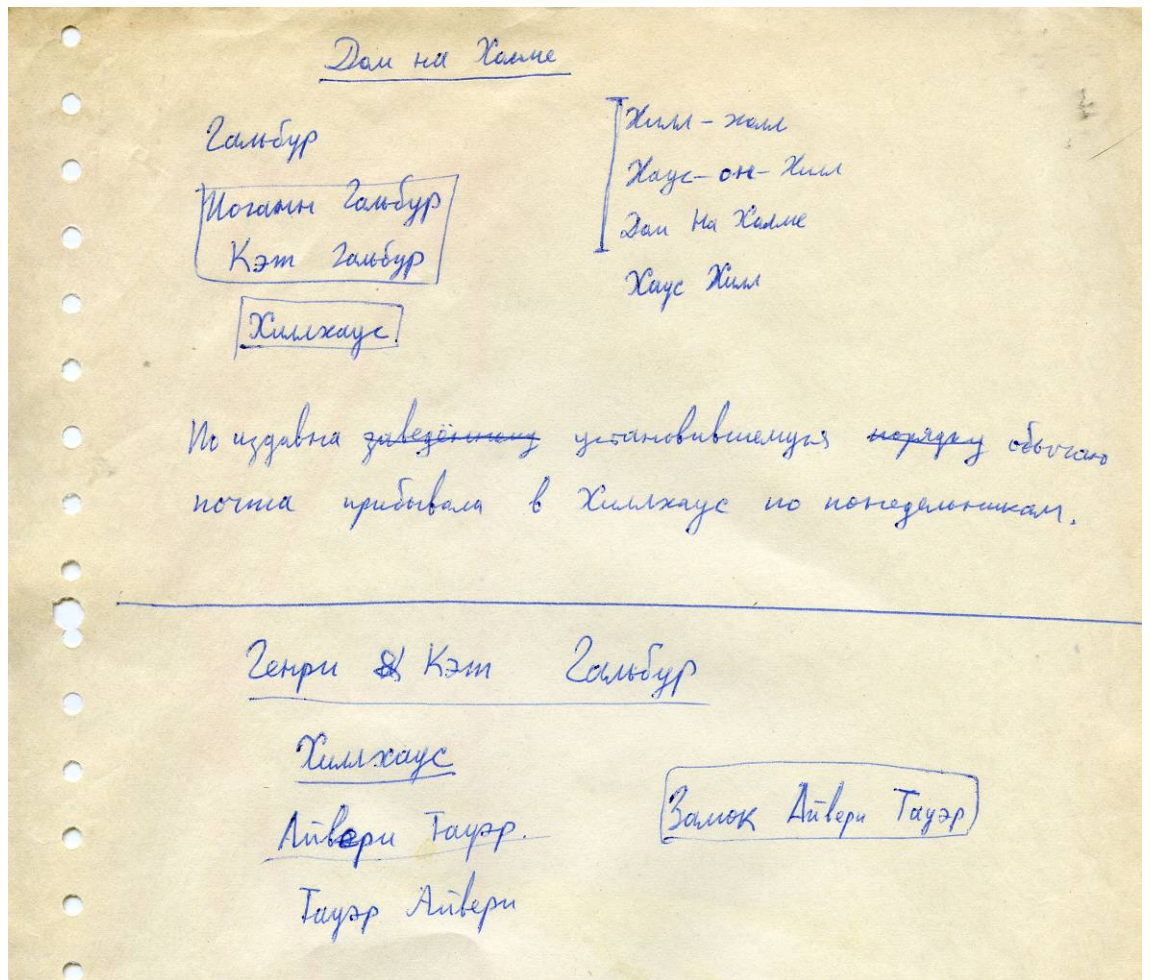 Дом на Холме
Гальбур
Иоганн Гальбур
Кэт Гальбур
Хиллхаус
Хилл-холл
Хаус-он-Хилл
Дом На Холме
Хаус Хилл
По издавна заведённому установившемуся порядку обычаю
почта прибывала в Хиллхаус по понедельникам.
Генри & Кэт Гальбур
Хиллхаус
Айвери Тауэр.
Тауэр Айвери
Замок Айвери Тауэр